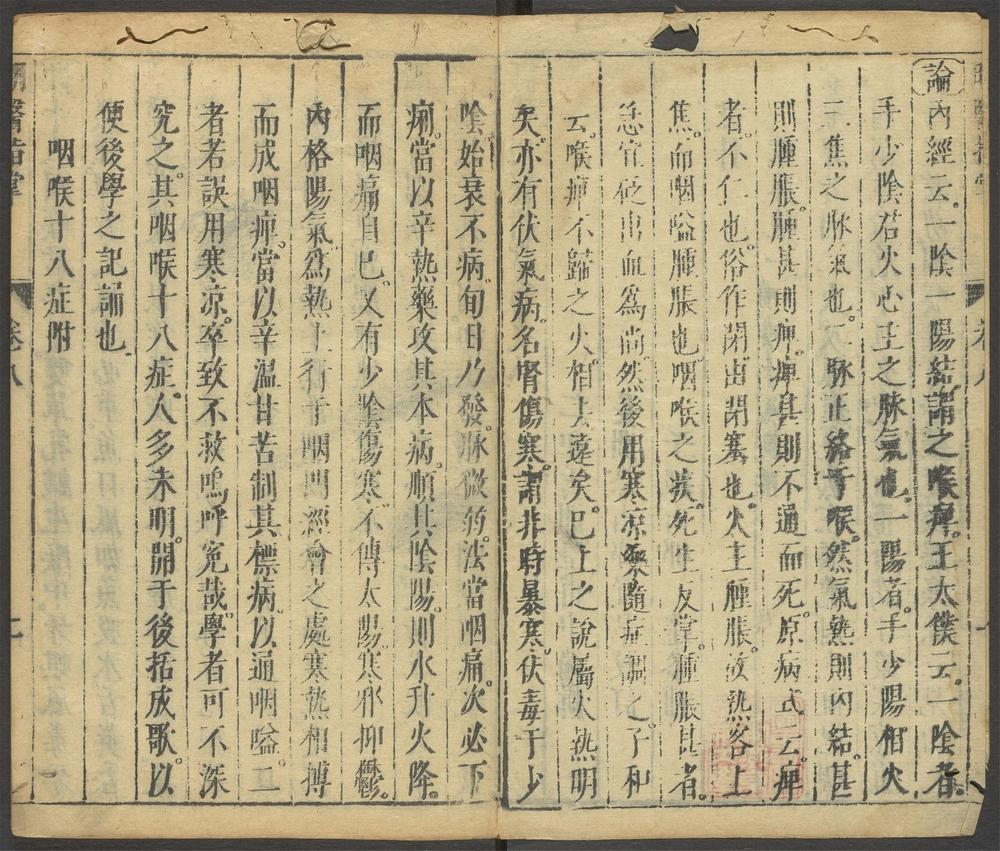 論內經云一陰一陽結謂之喉痺。王太僕云。一陰者。
手少陰君火心主之脉氣也。一陽者。手少陽相火
三焦之脉氣也。二脉正絡于喉。然氣熱則內結。甚
則腫脹。腫甚則痺。痺甚則不通而死。原病式云。痺
者。不仁也。俗作閉。由閉塞也。火主腫脹。故熱客上
焦。而咽嗌腫脹也。咽喉之疾。死生反掌。腫脹甚者。
急宜砭出血為尚。然後用寒凉藥隨症調之。子和
云。喉痺不歸之火。相去遠矣。已上之說屬火熱明
矣。亦有伏氣病。名腎傷寒。謂非時暴寒。伏毒于少
陰。始衰不病。旬日乃發。脉微弱。法當咽痛。次必下
痢。當以辛熱藥攻其本病。順其陰陽。則水升火降。
而咽痛自已。又有少陰傷寒。不傳太陽。寒邪抑鬱。
內格陽氣。為熱上行于咽門經會之處。寒熱相搏
而成咽痺。當以辛溫甘苦制其標病。以通咽嗌。二
者若誤用寒凉。卒致不救。嗚呼寃哉。學者可不深
究之。其咽喉十八症。人多未明。開于後括成歌。以
便後學之記誦也
咽喉十八症附
醫指掌
卷八